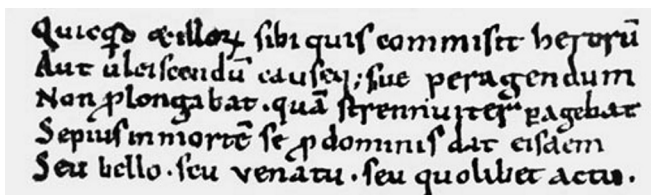 Quicqͥd & illoꝝ sibi quis commisit herorū
Aut ulciscendū causęq; sue peragendum
Non ꝓlongabat · quā strenniuiter ꝑagebat
Sepius in mortē se ꝓ dominis dat eisdem
Seu bello · seu venatu · seu quolibet actu ·